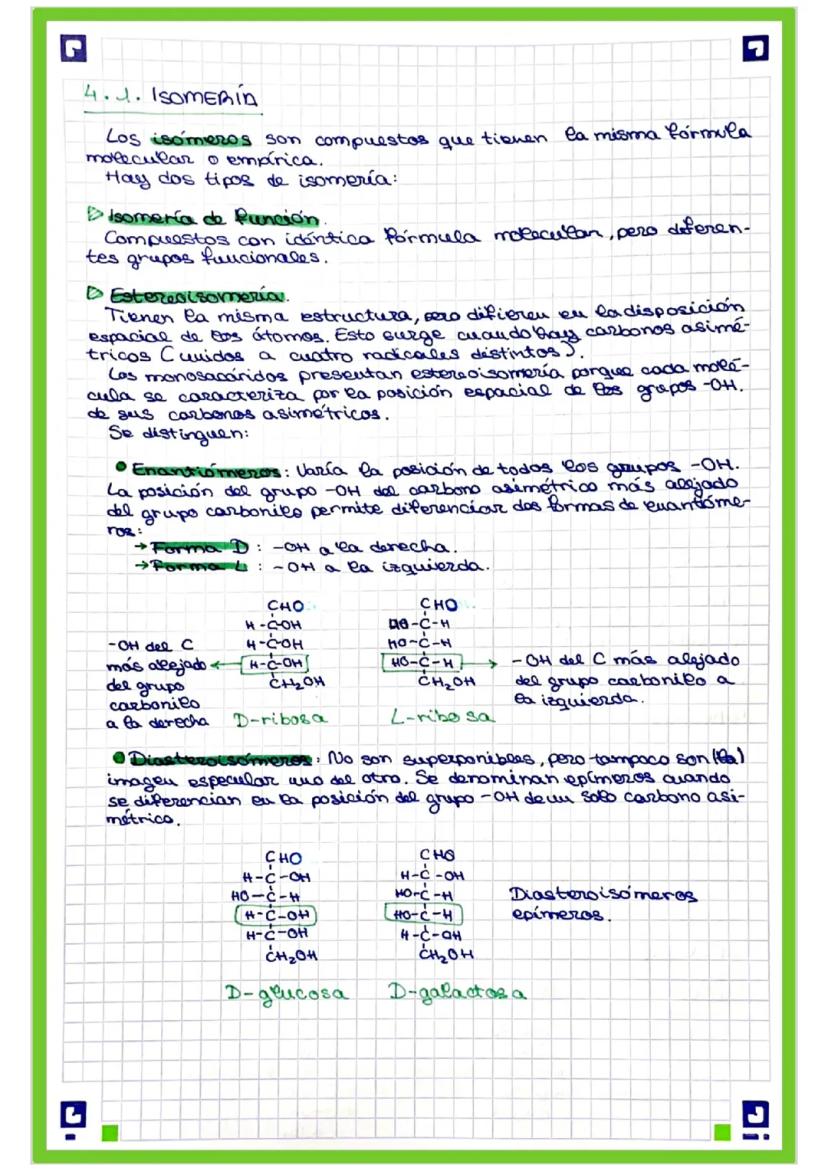 4.1. ISOMERÍA
Los isómeros son compuestos que tienen la misma fórmula
molecular o empírica.
Hay dos tipos de isomería:
▷ Isomería de función.
Compuestos con idéntica fórmula molecular, pero diferen-
tes grupos funcionales.
▷ Estereoisomería.
Tienen la misma estructura, pero difieren en la disposición
espacial de los átomos. Esto surge cuando hay carbonos asimé-
tricos (unidos a cuatro radicales distintos).
Los monosacáridos presentan estereoisomería porque cada molé-
cula se caracteriza por la posición espacial de los grupos -OH.
de sus carbonos asimétricos.
Se distinguen:
• Enantiómeros: Varía la posición de todos los grupos -OH.
La posición del grupo -OH del carbono asimétrico más alejado
del grupo carbonilo permite diferenciar dos formas de enantióme-
ros:
→ Forma D : -OH a la derecha.
→ Forma L : -OH a la izquierda.
CHO
H-C-OH
H-C-OH
H-C-OH
CH₂OH
D-ribosa
-OH del C
más alejado
del grupo
carbonilo
a la derecha
CHO
HO-C-H
HO-C-H
HO-C-H
CH₂OH
L-ribosa
-OH del C más alejado
del grupo carbonilo a
la izquierda.
• Diasteroisómeros: No son superponibles, pero tampoco son (la)
imagen especular uno del otro. Se denominan epímeros cuando
se diferencian en la posición del grupo -OH de un solo carbono asi-
métrico.
CHO
H-C-OH
HO-C-H
H-C-OH
H-C-OH
CH₂OH
D-glucosa
CHO
H-C-OH
HO-C-H
HO-C-H
H-C-OH
CH₂OH
D-galactosa
Diasteroisómeros
epímeros.